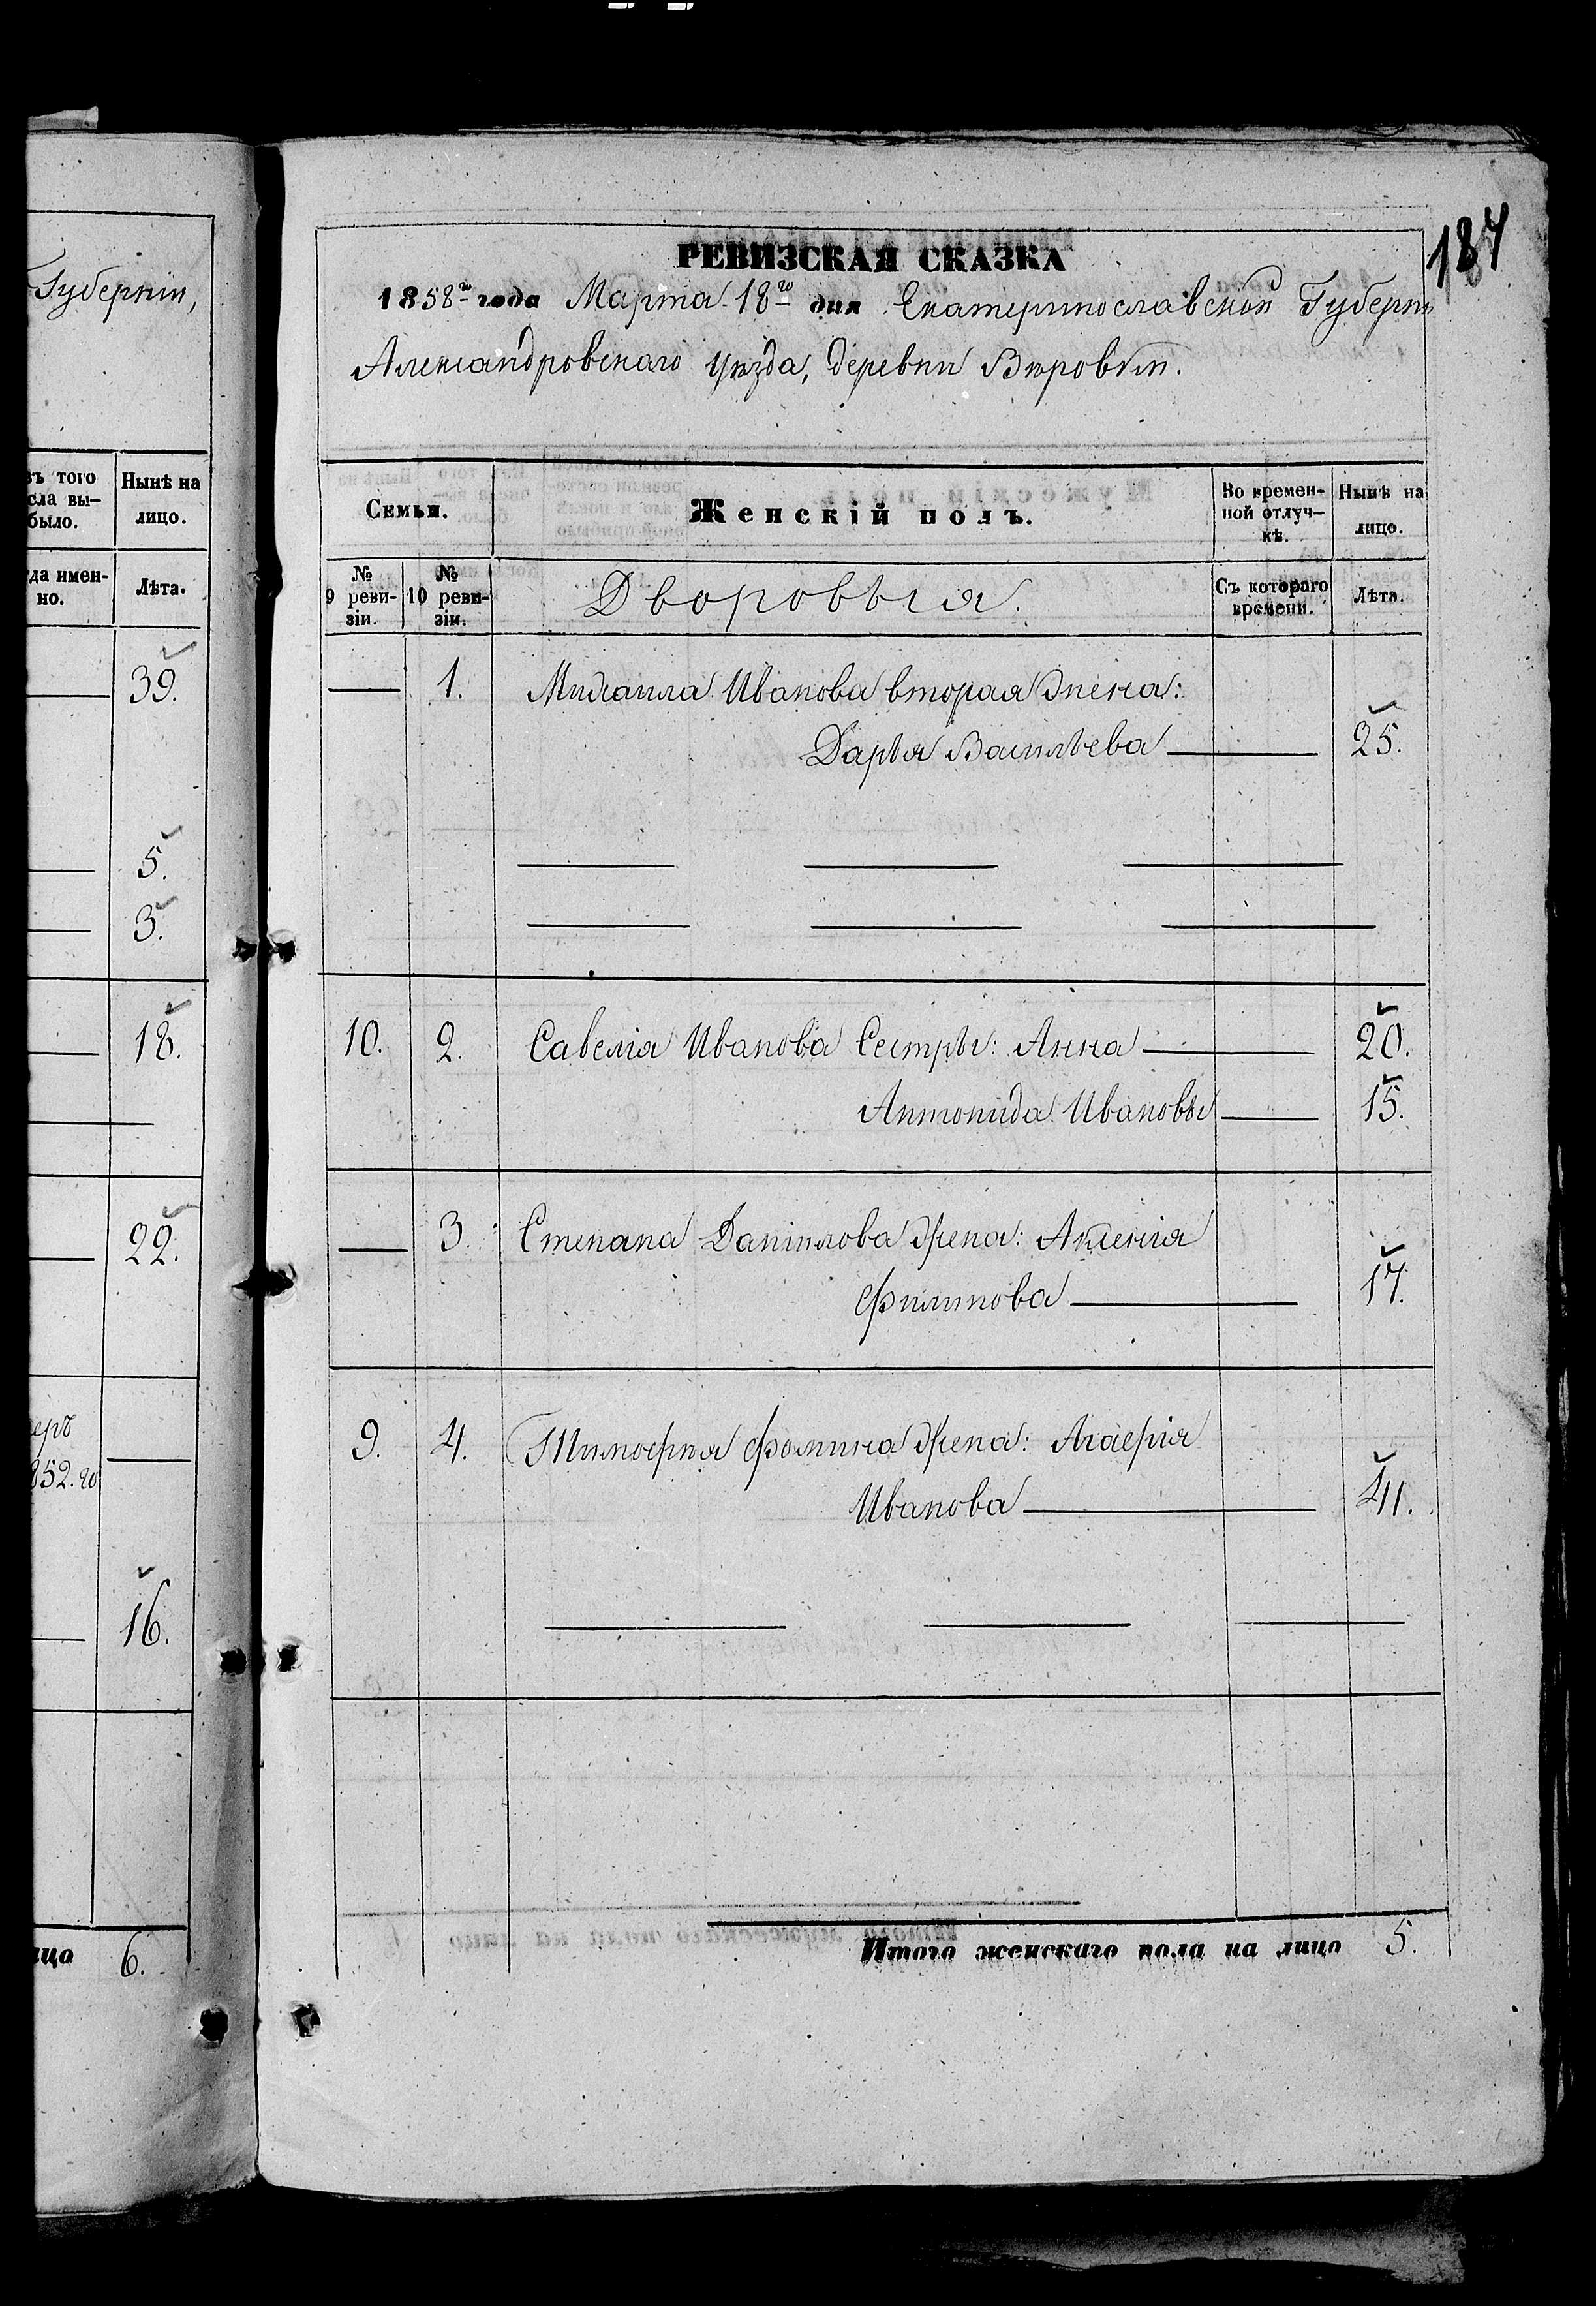 Губерніи,
зъ того
сла вы-
было.
Нынѣ на
лицо.
да имен-
но.
Лѣта.
39.
5.
3.
18.
22.
еръ
852. го
16.
ицо 6.
187
РЕВИЗСКАЯ СКАЗКА
1858го года Марта 18го дня Екатеринославской Губерніи
Александровскаго уѣзда, деревни Вѣровки.
Семьи.
Женскій полъ.
Во времен-
ной отлуч-
кѣ.
Нынѣ на
лицо.
№
9 реви-
зіи.
№
10 реви-
зіи.
Дворовыя.
Съ котораго
времени.
Лѣта.
— 1. Михаила Иванова вторая жена:
Дарья Васильева — 25.
10. 2. Савелія Иванова Сестры: Анна — 20.
Антонида Ивановы — 15.
— 3. Степана Данилова жена: Аксенія
Филипова — 17.
9. 4. Тимофея Фомина жена: Агафія
Иванова — 41.
Итого женскаго пола на лицо 5.